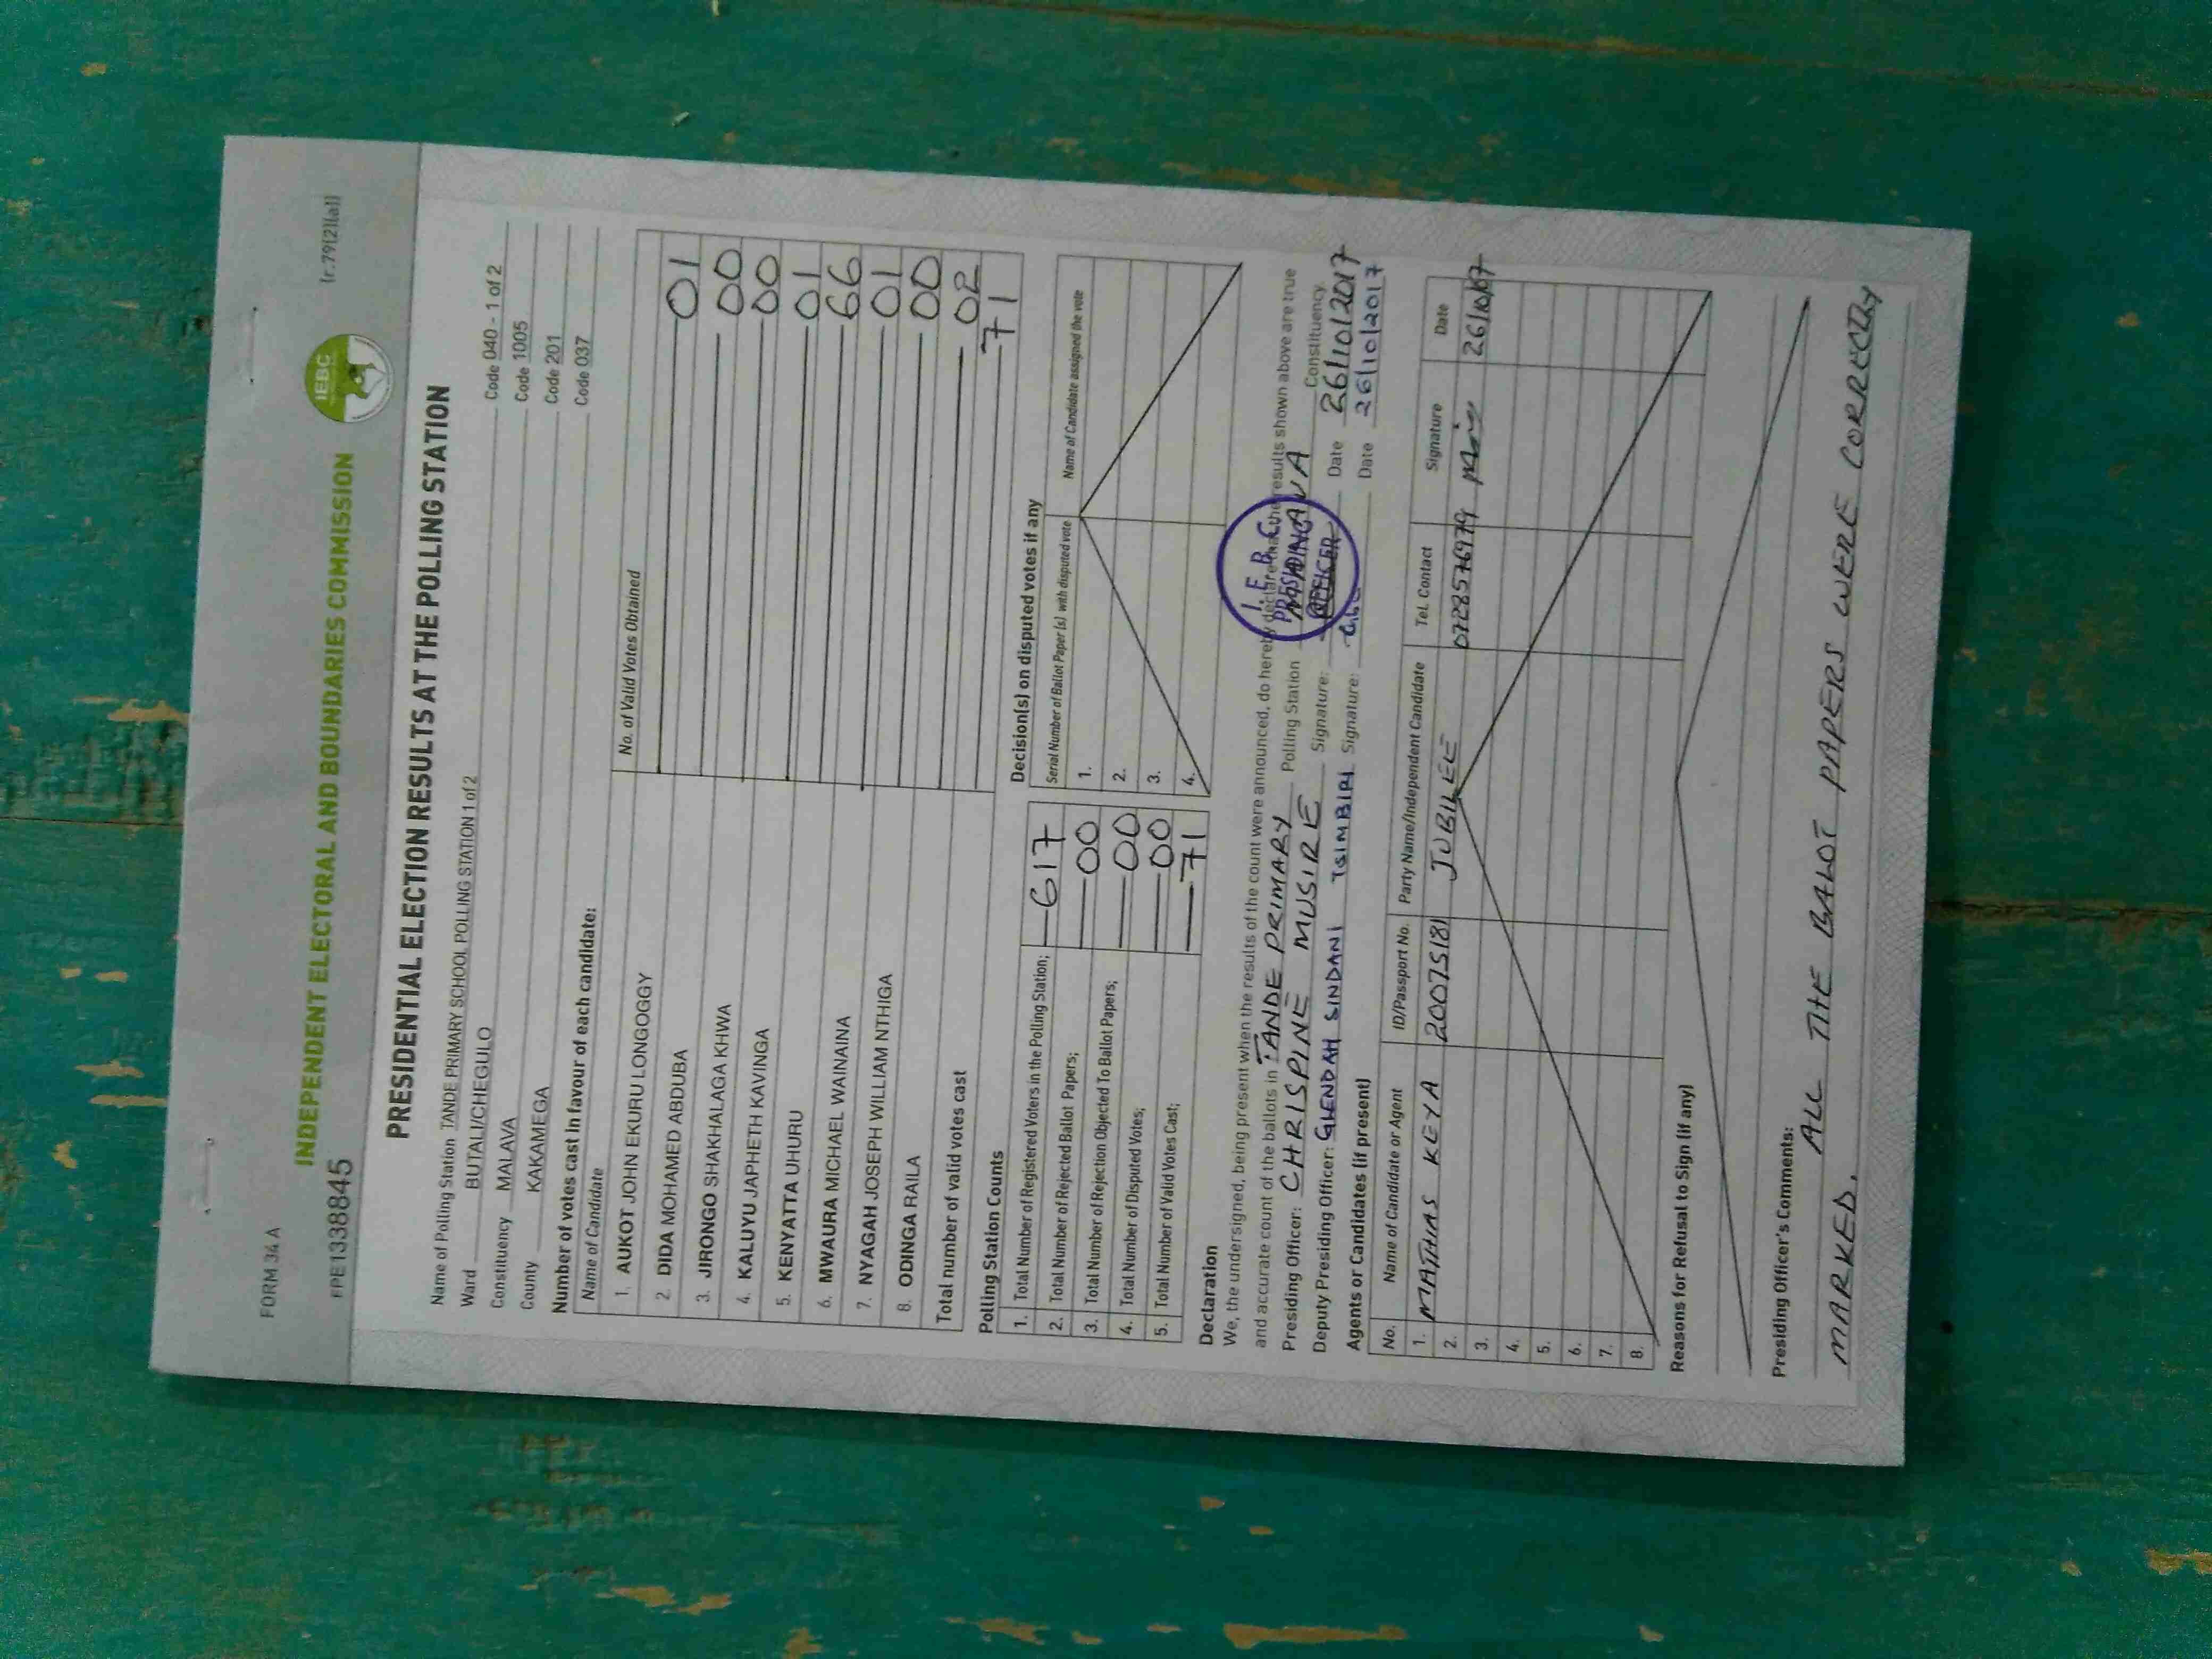 FORM 34 A
(r.79(2)(a))
IEBC
INDEPENDENT ELECTORAL AND BOUNDARIES COMMISSION
PRESIDENTIAL ELECTION RESULTS AT THE POLLING STATION
Name of Polling Station TANDE PRIMARY SCHOOL POLLING STATION 1 of 2 Code 040 - 1 of 2
Ward BUTALI/CHEGULO Code 1005
Constituency MALAVA Code 201
County KAKAMEGA Code 037
Number of votes cast in favour of each candidate:
Name of Candidate No. of Valid Votes Obtained
1. AUKOT JOHN EKURU LONGOGGY 01
2. DIDA MOHAMED ABDUBA 00
3. JIRONGO SHAKHALAGA KHWA 00
4. KALUYU JAPHETH KAVINGA 01
5. KENYATTA UHURU 66
6. MWAURA MICHAEL WAINAINA 01
7. NYAGAH JOSEPH WILLIAM NTHIGA 00
8. ODINGA RAILA 02
Total number of valid votes cast 71
Polling Station Counts
1. Total Number of Registered Voters in the Polling Station; 617
2. Total Number of Rejected Ballot Papers; 00
3. Total Number of Rejection Objected To Ballot Papers; 00
4. Total Number of Disputed Votes; 00
5. Total Number of Valid Votes Cast; 71
Decision(s) on disputed votes if any
Serial Number of Ballot Paper (s) with disputed vote Name of Candidate assigned the vote
1.
2.
3.
4.
Declaration
We, the undersigned, being present when the results of the count were announced, do hereby declare that the results shown above are true
and accurate count of the ballots in TANDE PRIMARY Polling Station MALAVA Constituency.
Presiding Officer: CHRISPINE MUSIRE Signature: Date 26/10/2017
Deputy Presiding Officer: GLENDAH SINDANI TSIMBIRI Signature: Date 26/10/2017
I.E.B.C
PRESIDING
OFFICER
Agents or Candidates (if present)
No. Name of Candidate or Agent ID/Passport No. Party Name/Independent Candidate Tel. Contact Signature Date
1. MATHIAS KEYA 20075181 JUBILEE 0728576979 26/10/07
2.
3.
4.
5.
6.
7.
8.
Reasons for Refusal to Sign (if any)
Presiding Officer's Comments:
ALL THE BALOT PAPERS WERE CORRECTLY
MARKED.